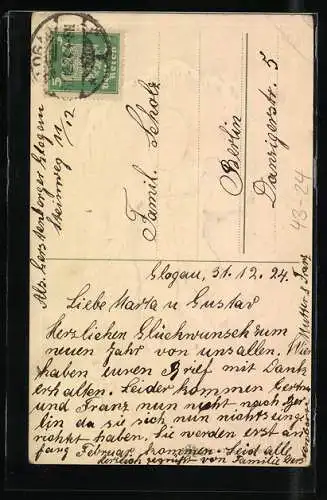 GLOGAU
Deutsches Reich
5
Abs. Gerstenberger Glogau
Steinweg 11/12
Famil. Scholz
Berlin
Danzigerstr. 5
43-24
Glogau, 31.12.24.
Liebe Marta u Gustav
Herzlichen Glückwunsch zum
neuen Jahr von uns allen. Wir
haben euren Brief mit Dank
erhalten. Leider kommen
und Franz nun nicht nach Ber-
lin da sie sich nun nichts einge-
richtet haben. Sie werden erst an-
fang Februar kommen. Seid alle
herzlich gegrüßt von Familie Gers
Mutter u Franz